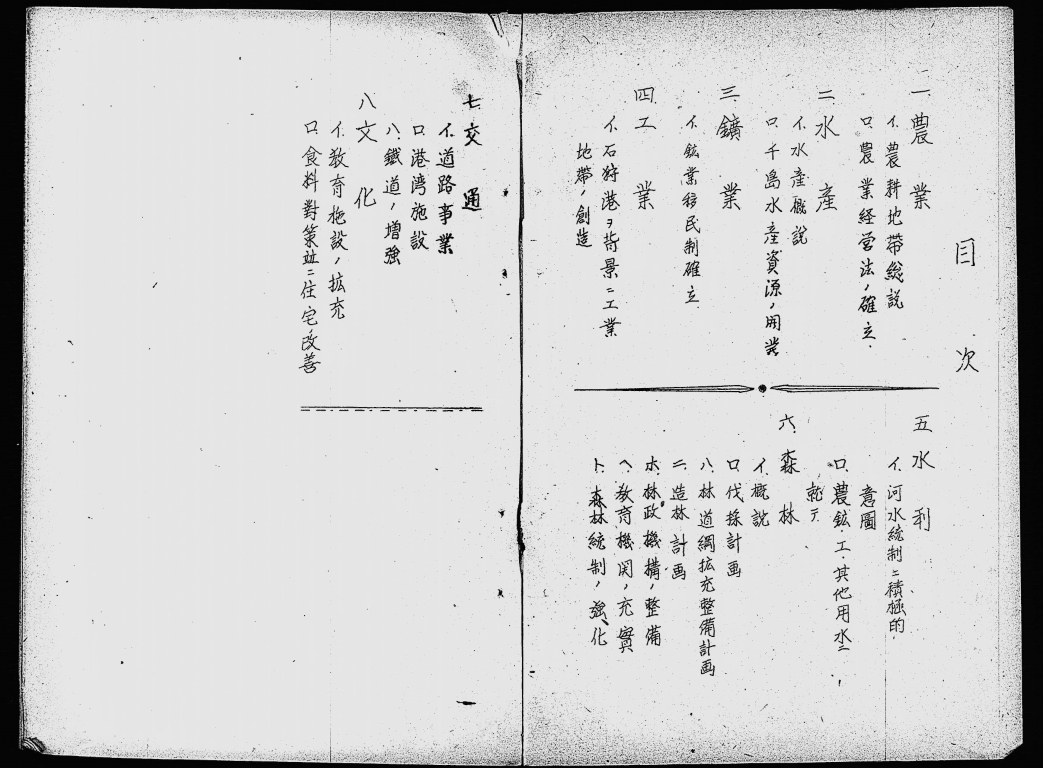 目次
一、農業
イ、農耕地帯総説
ロ、農業経営法ノ確立
二、水産
イ、水産概説
ロ、千島水産資源ノ開発
三、鑛業
イ、鉱業移民制確立
四、工業
イ、石狩港ヲ背景ニ工業
地帯ノ創造
五、水利
イ、河水統制ニ積極的
意圖
ロ、農鉱、工、其他用水ニ
就テ
六、森林
イ、概説
ロ、伐採計画
ハ、林道綱拡充整備計画
ニ、造林計画
ホ、林政機構ノ整備
ヘ、教育機関ノ充實
ト、森林統制ノ強化
七、交通
イ、道路事業
ロ、港湾施設
ハ、鐵道ノ増強
八、文化
イ、教育施設ノ拡充
ロ、食料對策並ニ住宅改善